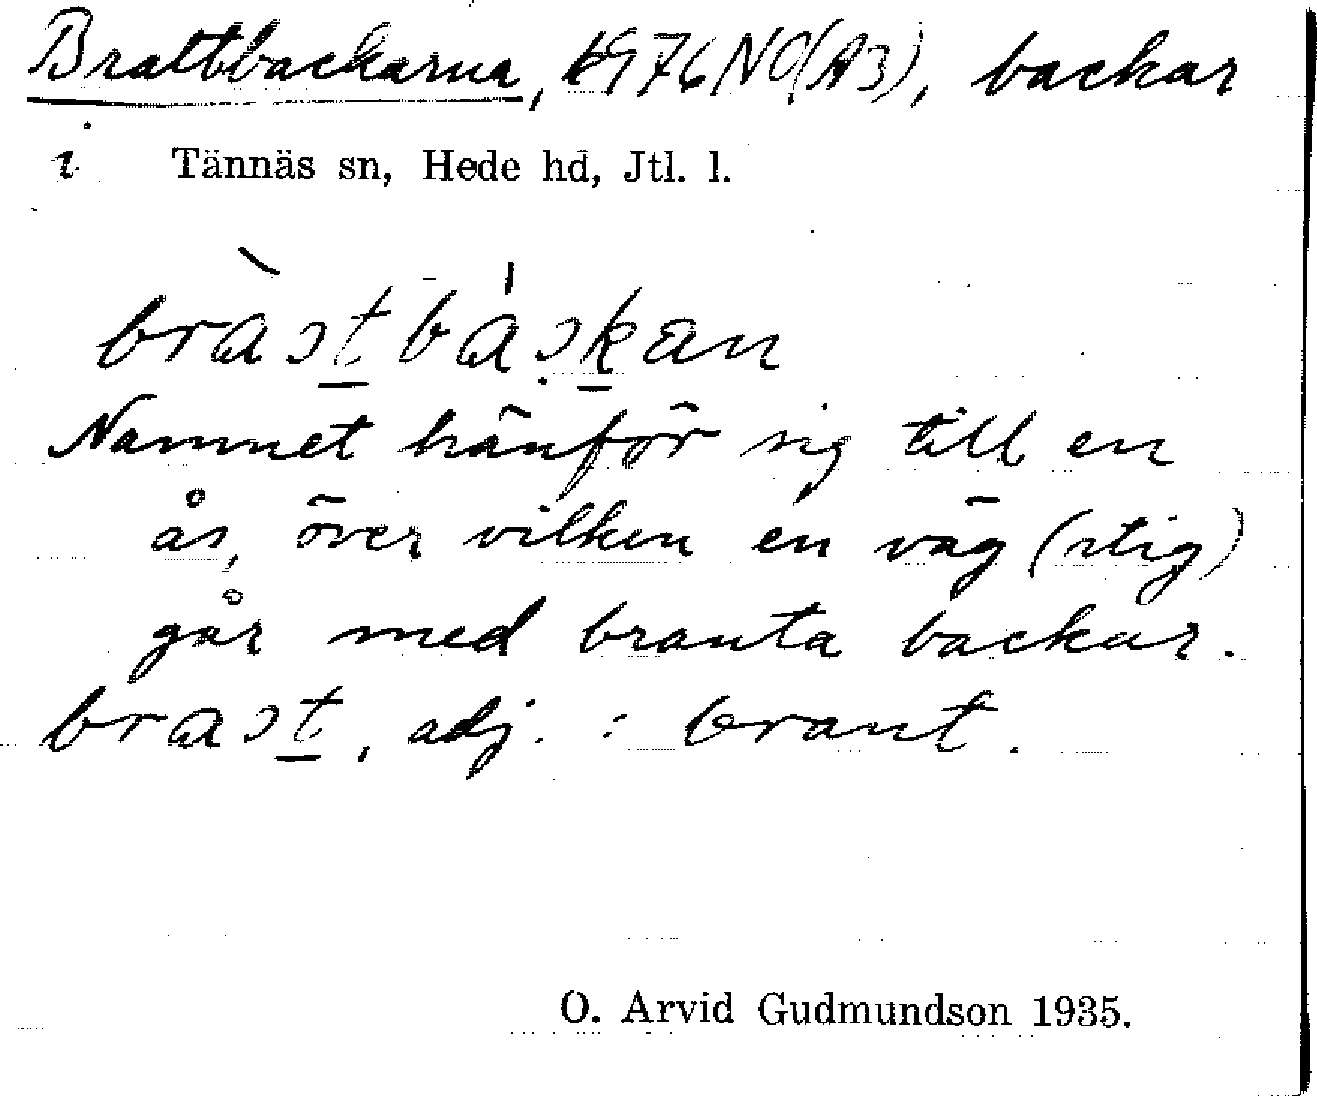 Brattbackarna, 1976 NO(A3), backar
i Tännäs sn, Hede hd, Jtl. l.
Namnet hänför sig till en
ås, över vilken en väg (stig)
går med branta backar.
adj. : brant.
O. Arvid Gudmundson 1935.